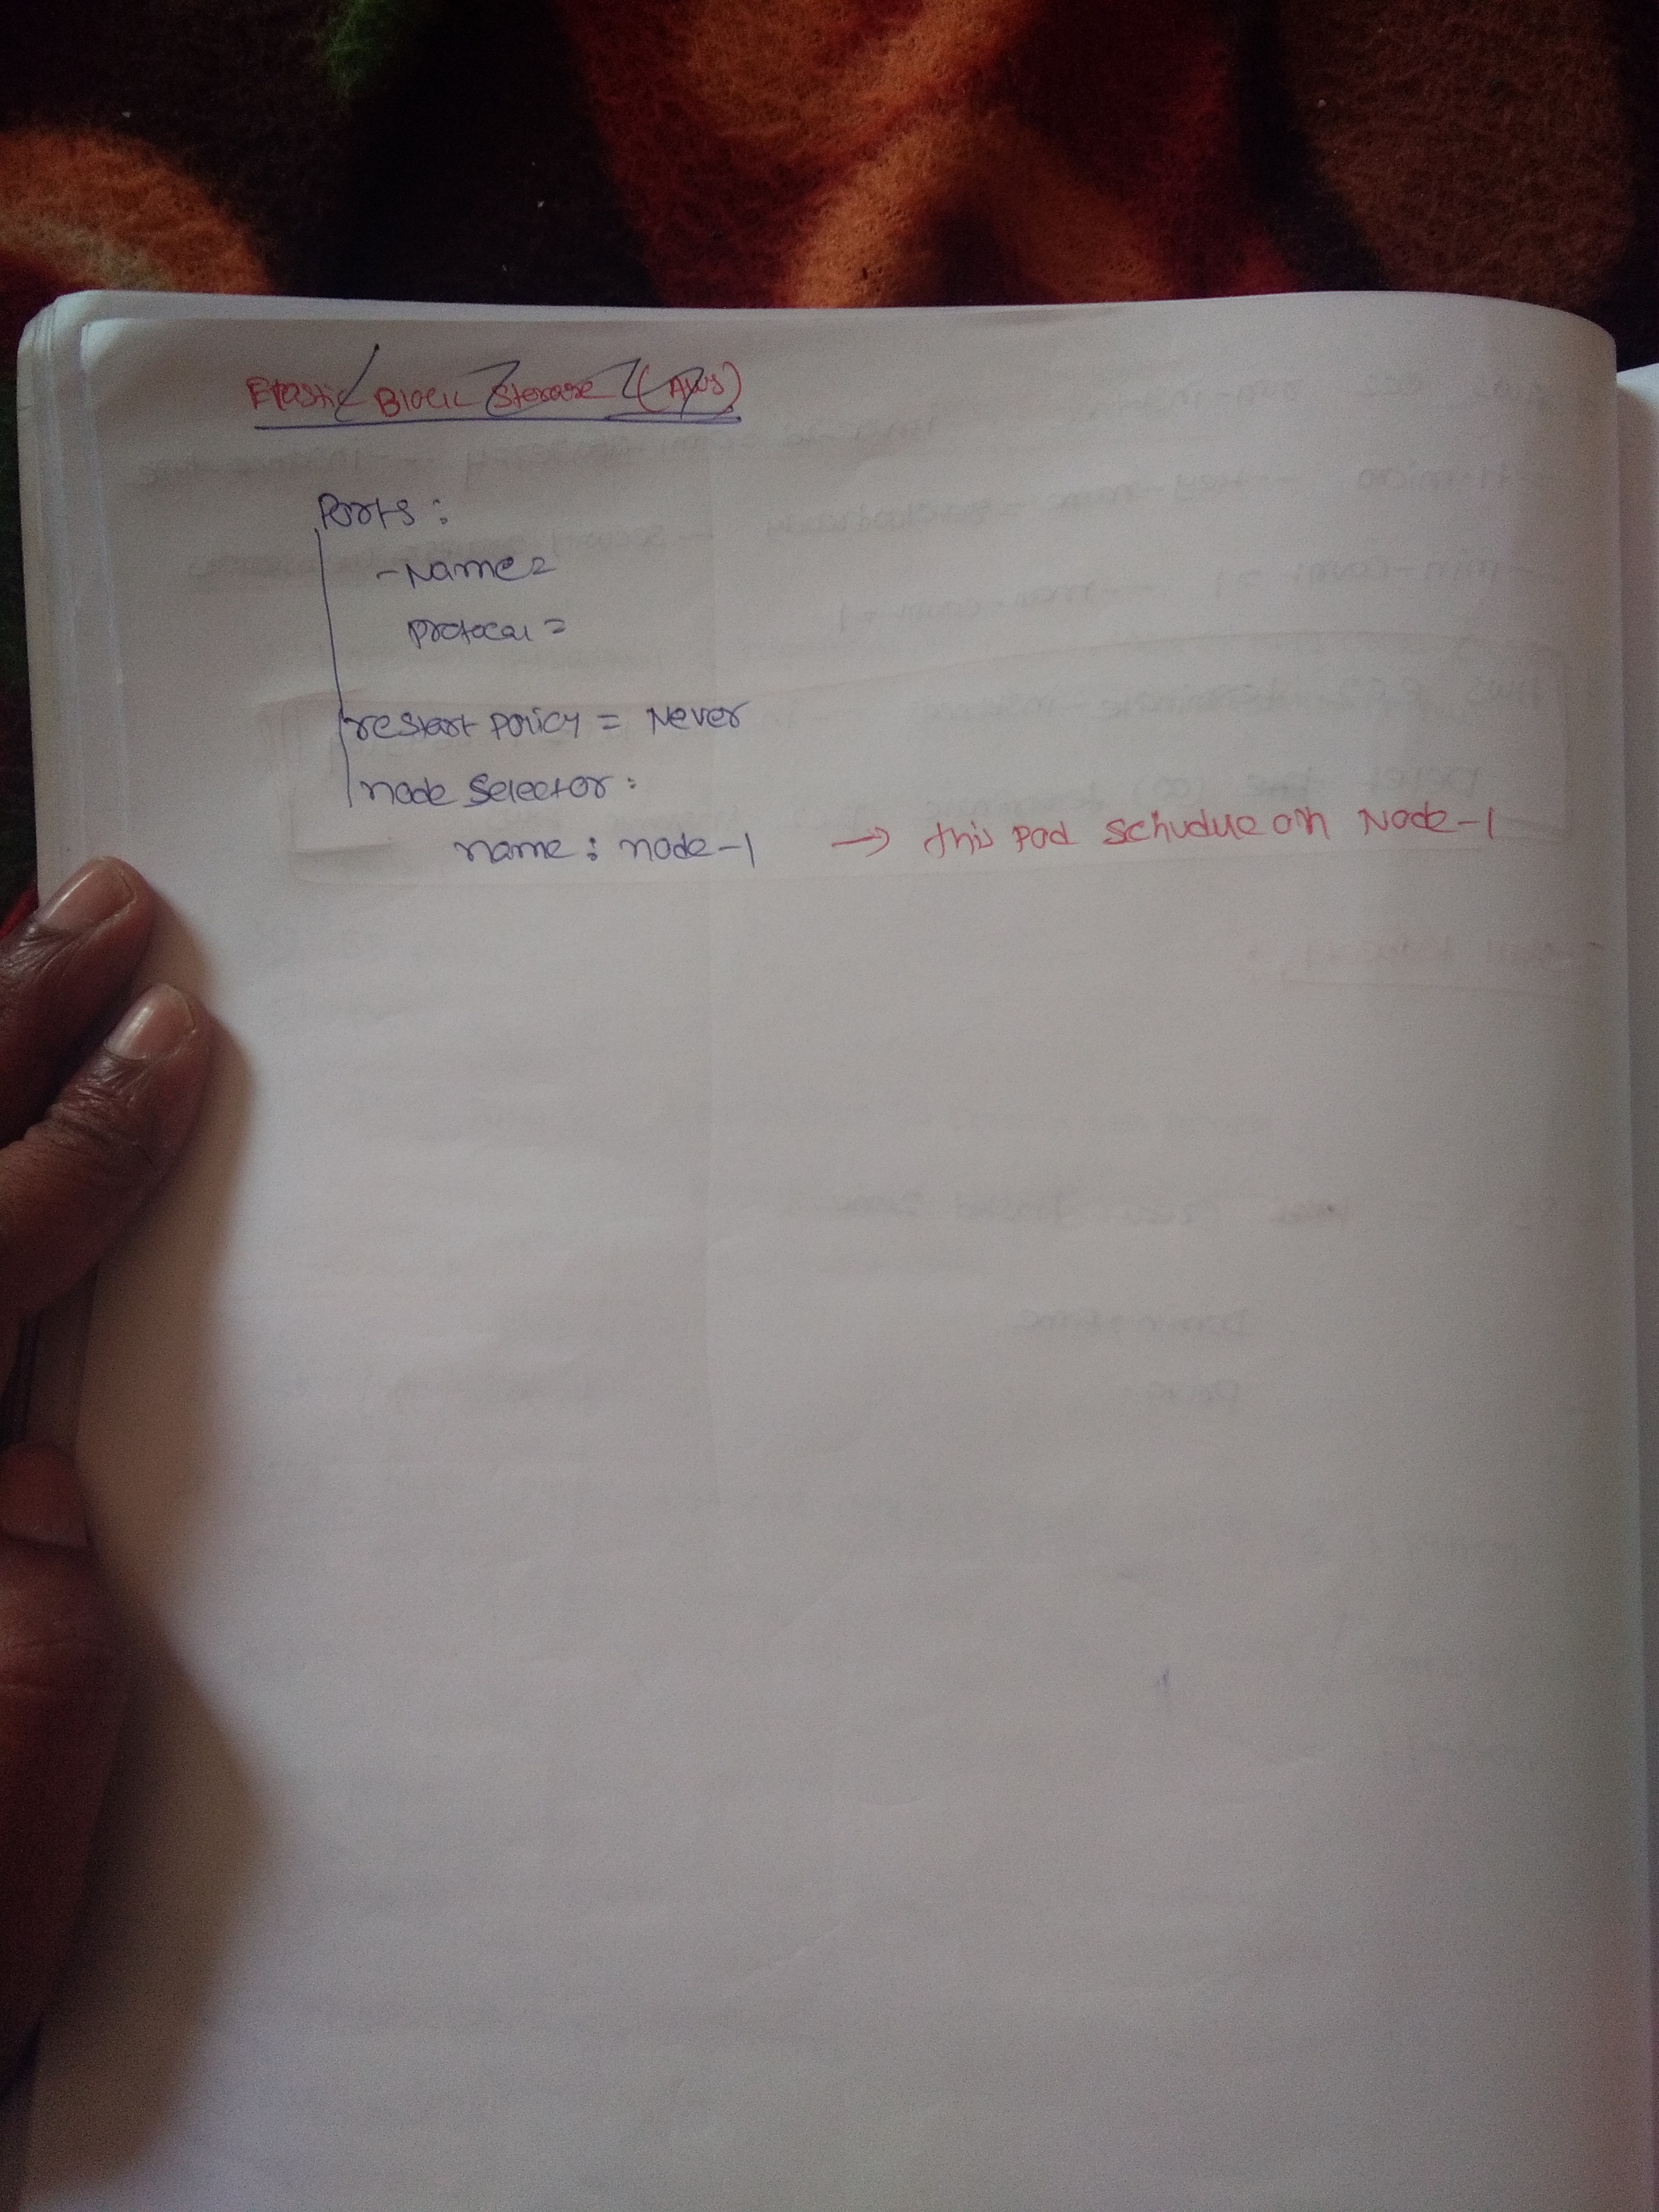 Elastic Block Storage (AWS)
Ports:
- Name =
Protocal =
restart policy = Never
node Selector:
name: node-1 → this pod schudue on Node-1